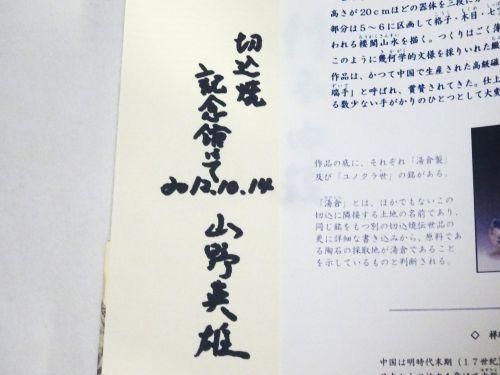 切込焼
記念館にて
2012.10.14
山野英雄
高さが20cmほどの器体を三段に
部分は5～6に区画して格子・木目・七
われる楼閣山水を描く。つくりはごく薄
このように幾何学的文様を採りいれた
作品は、かつて中国で生産された高級磁
瑞手」と呼ばれ、賞賛されてきた。仕上
る数少ない手がかりのひとつとして大変
作品の底に、それぞれ「湯倉製」
及び「ユノクラ世」の銘がある。
「湯倉」とは、ほかでもないこの
切込に隣接する土地の名前であり、
同じ銘をもつ別の切込焼伝世品の
更に詳細な書き込みから、原料であ
る陶石の採取地が湯倉であること
を示しているものと判断される。
◇
中国は明時代末期（17世紀